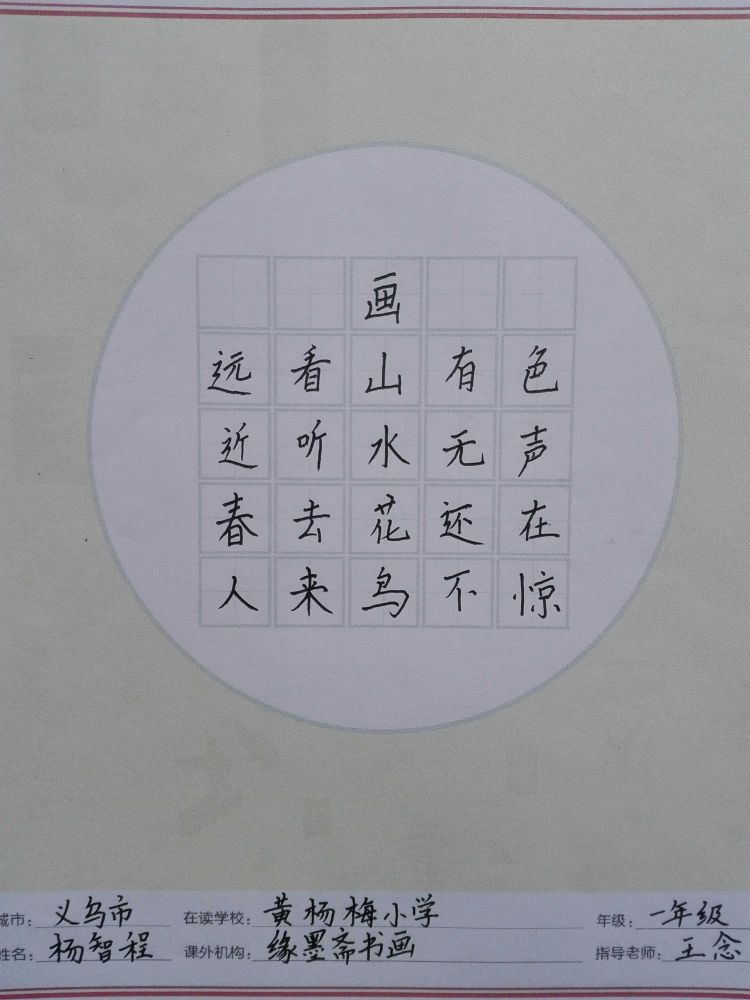 画
远看山有色
近听水无声
春去花还在
人来鸟不惊
城市: 义乌市 在读学校: 黄杨梅小学 年级: 一年级
姓名: 杨智程 课外机构: 缘墨斋书画 指导老师: 王念